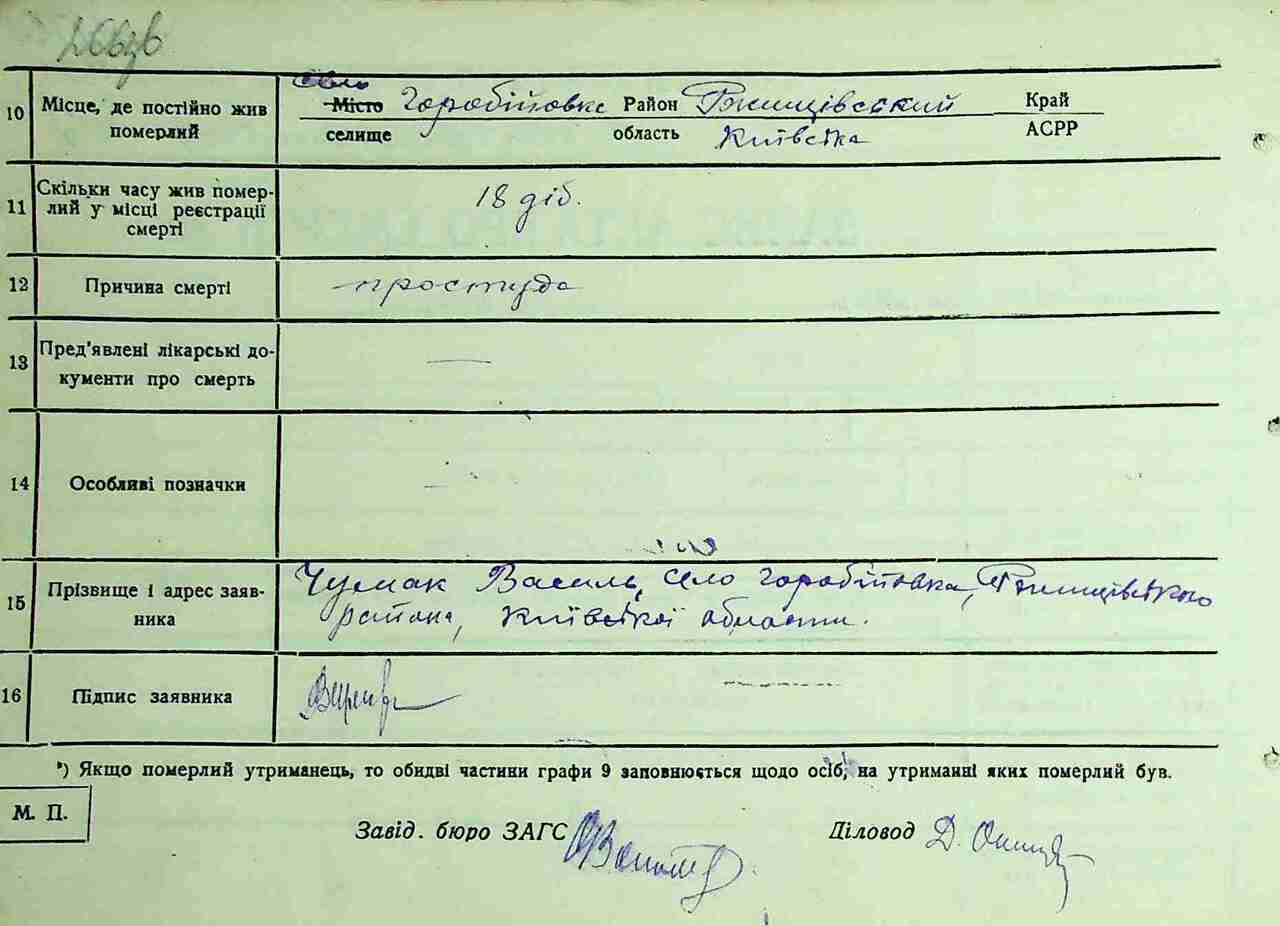 село
10 Місце, де постійно жив Місто Горобіївка Район Ржищівський Край
померлий селище область Київська АСРР
11 Скільки часу жив помер-
лий у місці реєстрації 18 діб.
смерті
12 Причина смерті простуда
13 Пред'явлені лікарські до- —
кументи про смерть
14 Особливі позначки —
15 Прізвище і адрес заяв- Чумак Василь, село Горобіївка, Ржищівського
ника району, Київської области.
16 Підпис заявника
*) Якщо померлий утриманець, то обидві частини графи 9 заповнюється щодо осіб, на утриманні яких померлий був.
М. П.
Завід. бюро ЗАГС Діловод Д.